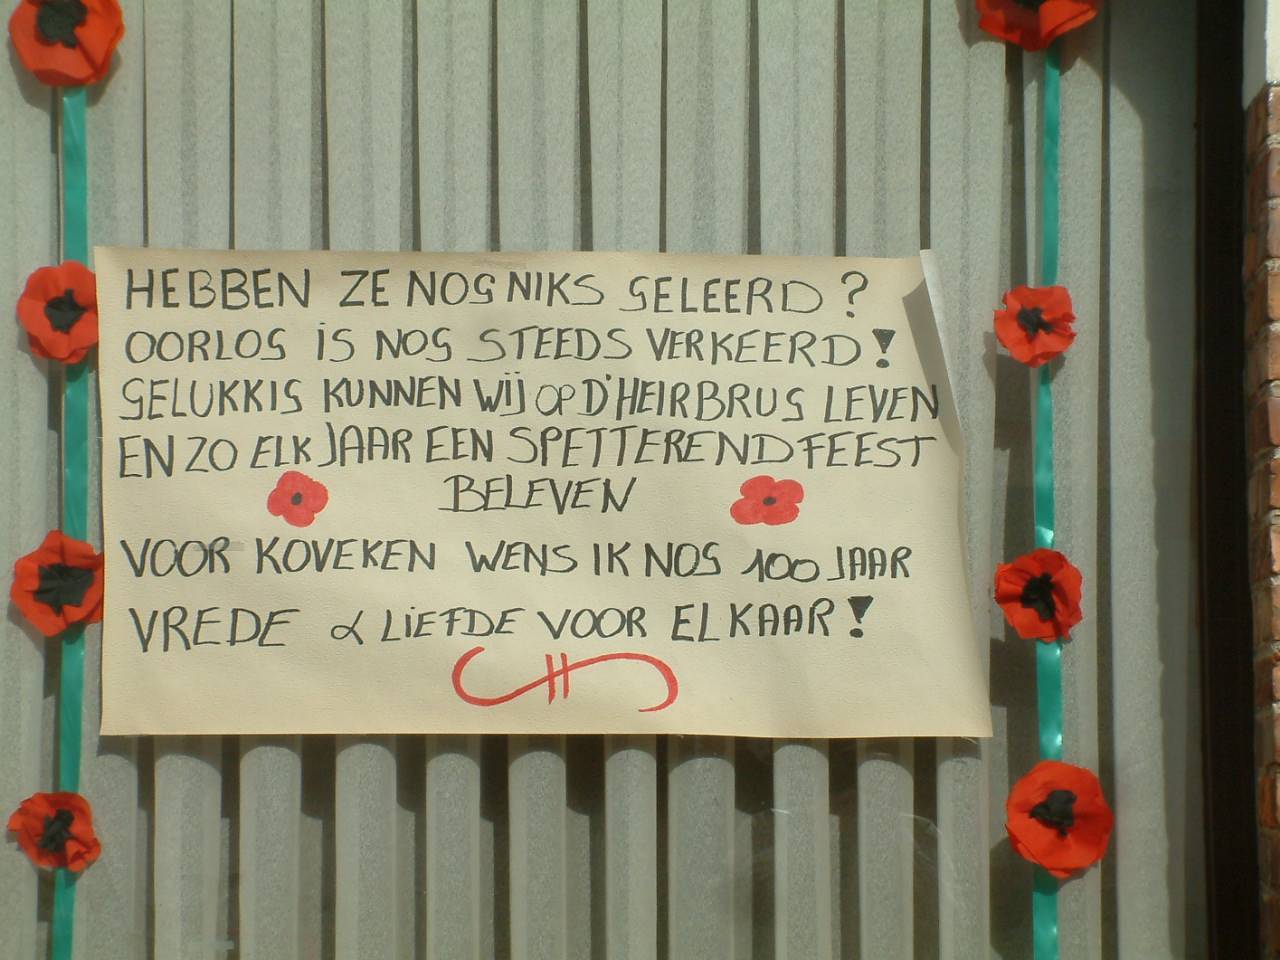 HEBBEN ZE NOG NIKS GELEERD?
OORLOG IS NOG STEEDS VERKEERD!
GELUKKIG KUNNEN WIJ OP D'HEIRBRUG LEVEN
EN ZO ELK JAAR EEN SPETTEREND FEEST
BELEVEN
VOOR KOVEKEN WENS IK NOG 100 JAAR
VREDE & LIEFDE VOOR ELKAAR!